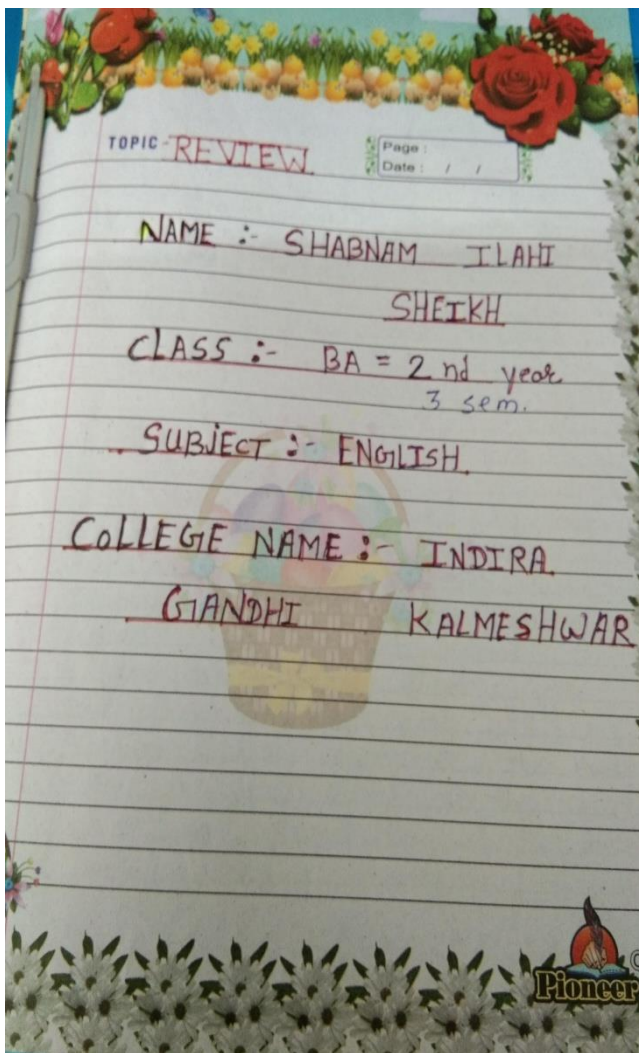 TOPIC - REVIEW
Page :
Date : / /
NAME :- SHABNAM ILAHI
SHEIKH
CLASS :- BA = 2 nd year
3 sem.
SUBJECT :- ENGLISH
COLLEGE NAME :- INDIRA
GANDHI KALMESHWAR
Pioneer